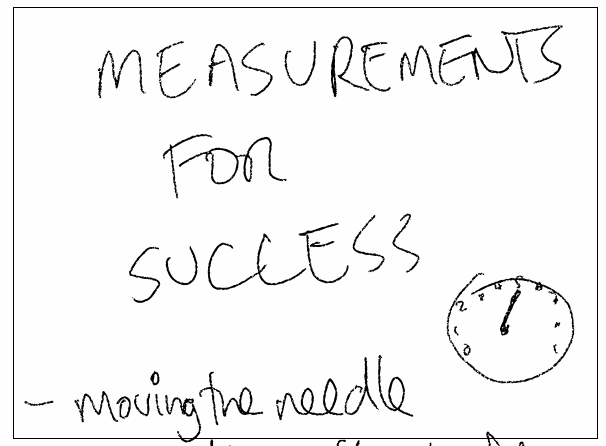 MEASUREMENTS
FOR
SUCCESS
- moving the needle